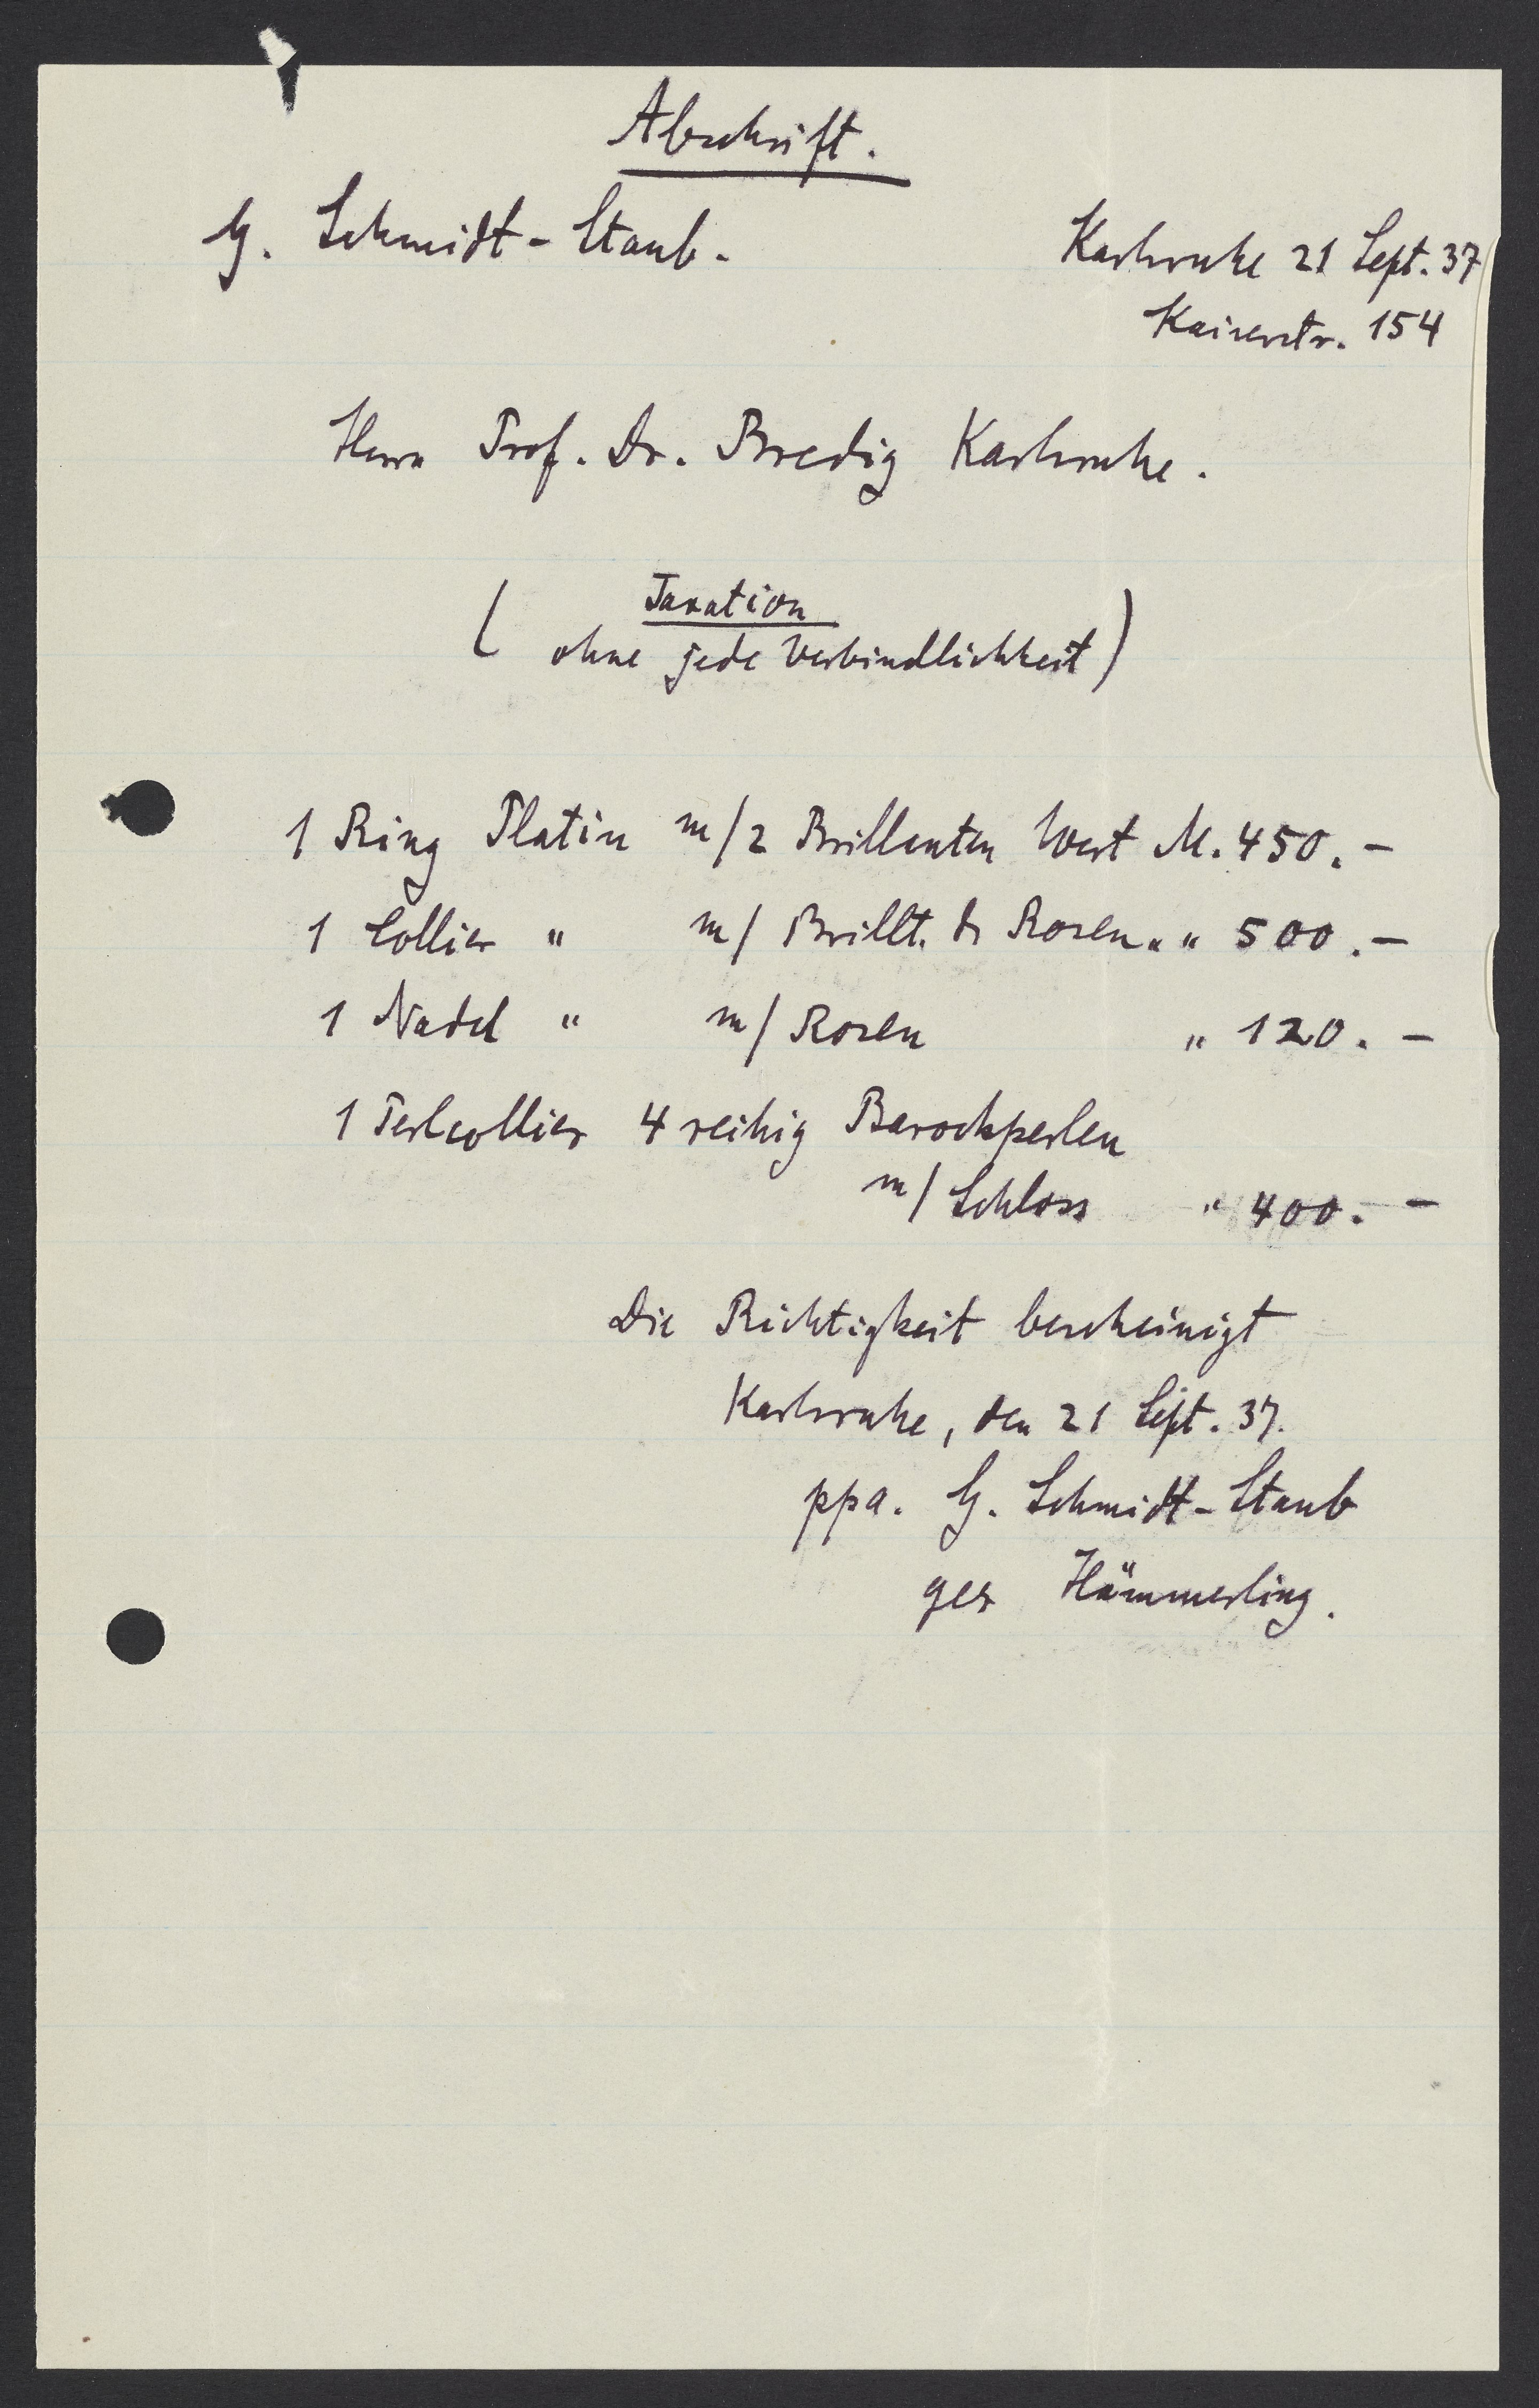 Abschrift.
G. Schmidt-Staub.
Karlsruhe 21 Sept. 37
Kaiserstr. 154
Herrn Prof. Dr. Bredig Karlsruhe.
Taxation
( ohne jede Verbindlichkeit )
1 Ring Platin m/2 Brillanten Wert M. 450.-
1 Collier " m/ Brillt. & Rosen " " 500.-
1 Nadel " m/ Rosen " 120.-
1 Perlcollier 4 reihig Barockperlen
m/ Schloss " 400.-
Die Richtigkeit bescheinigt
Karlsruhe, den 21 Sept. 37.
ppa. G. Schmidt-Staub
gez Hämmerling.